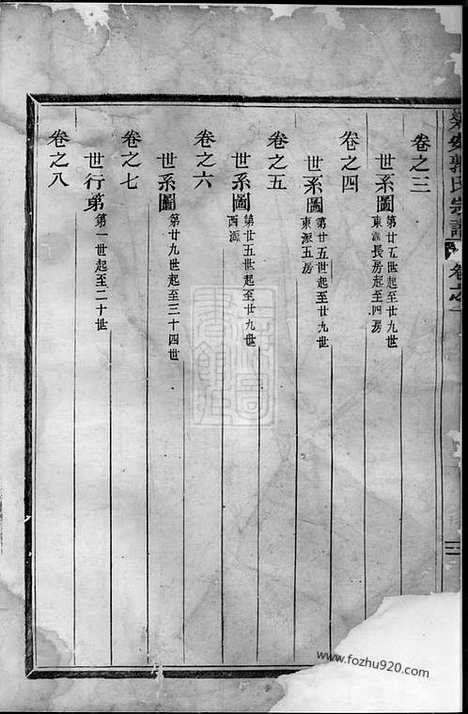 氏宗譜
卷之一
卷之三
世系圖 第廿五世起至廿九世
東派長房起至四房
卷之四
世系圖 第廿五世起至廿九世
東派五房
卷之五
世系圖 第廿五世起至廿九世
西派
卷之六
世系圖 第廿九世起至三十四世
卷之七
世行第 第一世起至二十世
卷之八
www.fozhu920.com